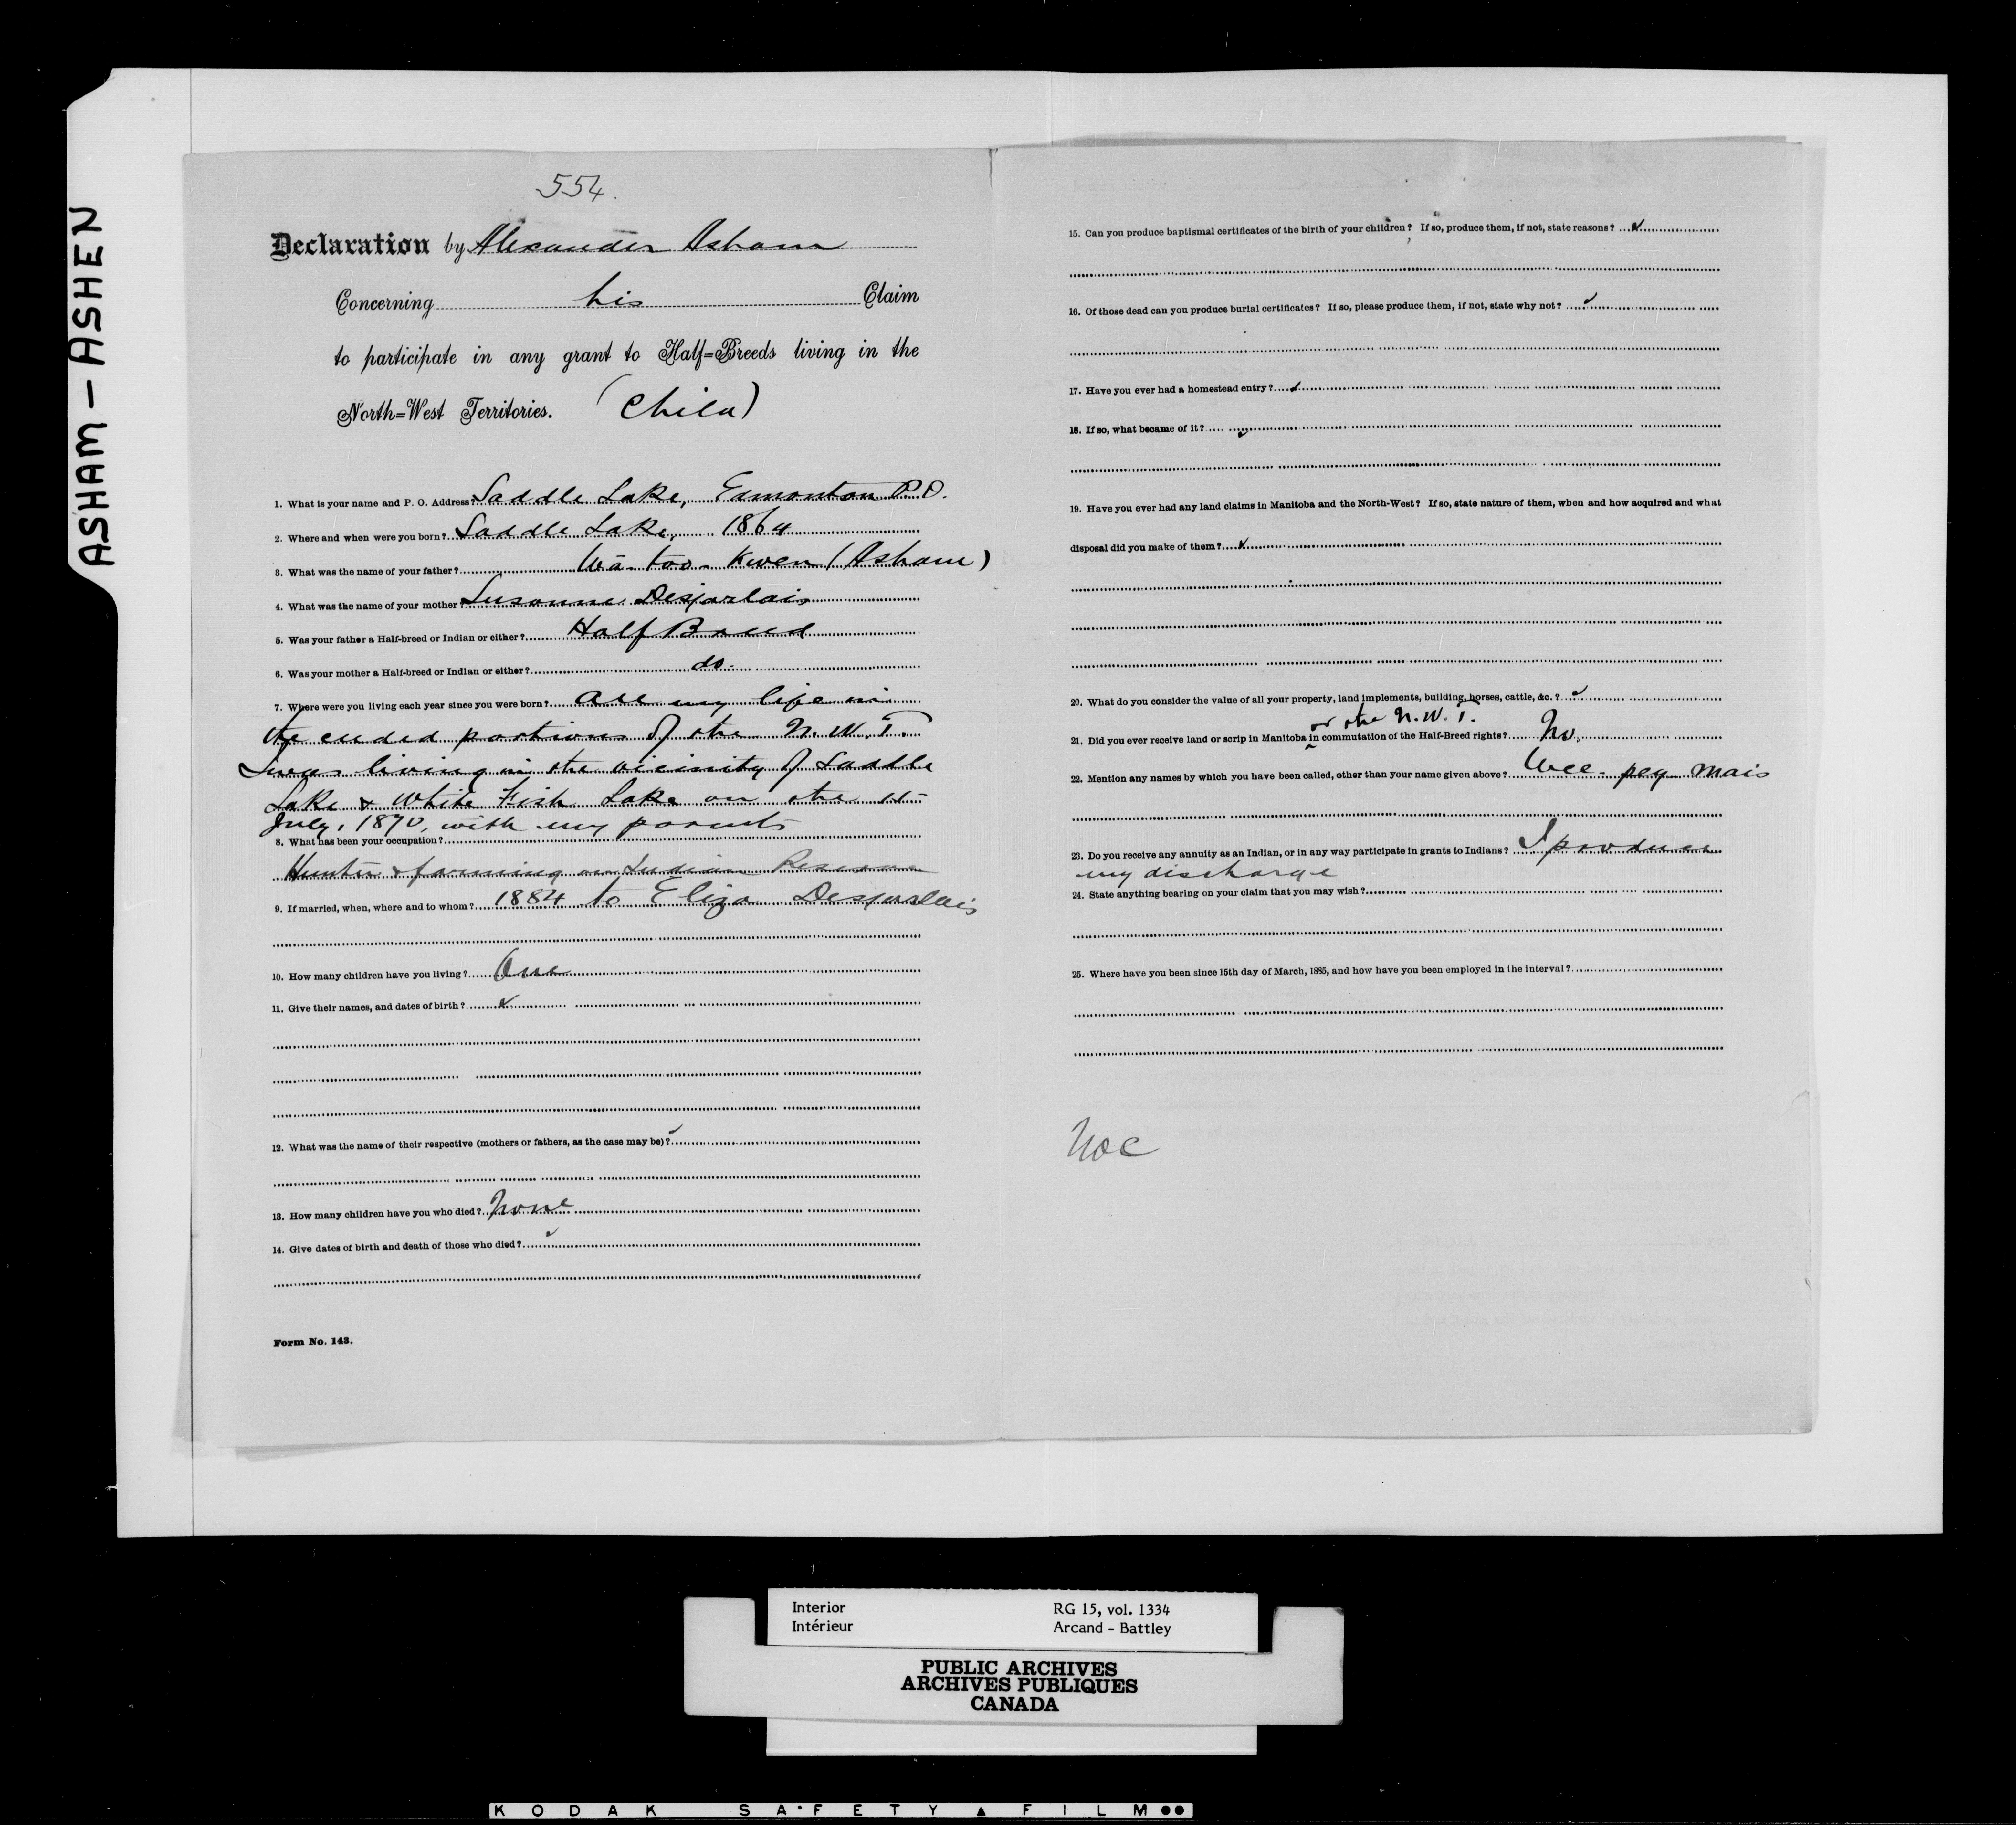 ASHAM - ASHEN
554.
Declaration by Alexander Asham
Concerning his Claim
to participate in any grant to Half=Breeds living in the
North=West Territories. (Child)
1. What is your name and P. O. Address? Saddle Lake, Edmonton P.O.
2. Where and when were you born? Saddle Lake, 1864
3. What was the name of your father? Wā-too-Kwen (Asham)
4. What was the name of your mother? Susanne Desjarlais
5. Was your father a Half-breed or Indian or either? Half Breed
6. Was your mother a Half-breed or Indian or either? do.
7. Where were you living each year since you were born? All my life in
the ceded portions of the N. W. T.
I was living in the vicinity of Saddle
Lake & White Fish Lake on the 15
July, 1870, with my parents
8. What has been your occupation?
Hunter & farming on Indian Reserve
9. If married, when, where and to whom? 1884 to Eliza Desjarlais
10. How many children have you living? One
11. Give their names, and dates of birth? ✓
12. What was the name of their respective (mothers or fathers, as the case may be)? ✓
13. How many children have you who died? None
14. Give dates of birth and death of those who died? ✓
Form No. 143.
15. Can you produce baptismal certificates of the birth of your children? If so, produce them, if not, state reasons? ✓
16. Of those dead can you produce burial certificates? If so, please produce them, if not, state why not? ✓
17. Have you ever had a homestead entry? ✓
18. If so, what became of it? ✓
19. Have you ever had any land claims in Manitoba and the North-West? If so, state nature of them, when and how acquired and what
disposal did you make of them? ✓
20. What do you consider the value of all your property, land implements, building, horses, cattle, &c.? ✓
or the N. W. T.
21. Did you ever receive land or scrip in Manitoba in commutation of the Half-Breed rights? No.
22. Mention any names by which you have been called, other than your name given above? Wee-pey mais
23. Do you receive any annuity as an Indian, or in any way participate in grants to Indians? I produce
my discharge
24. State anything bearing on your claim that you may wish?
25. Where have you been since 15th day of March, 1885, and how have you been employed in the interval?
Interior RG 15, vol. 1334
Intérieur Arcand - Battley
PUBLIC ARCHIVES
ARCHIVES PUBLIQUES
CANADA
KODAK SAFETY ▲ FILM ●●